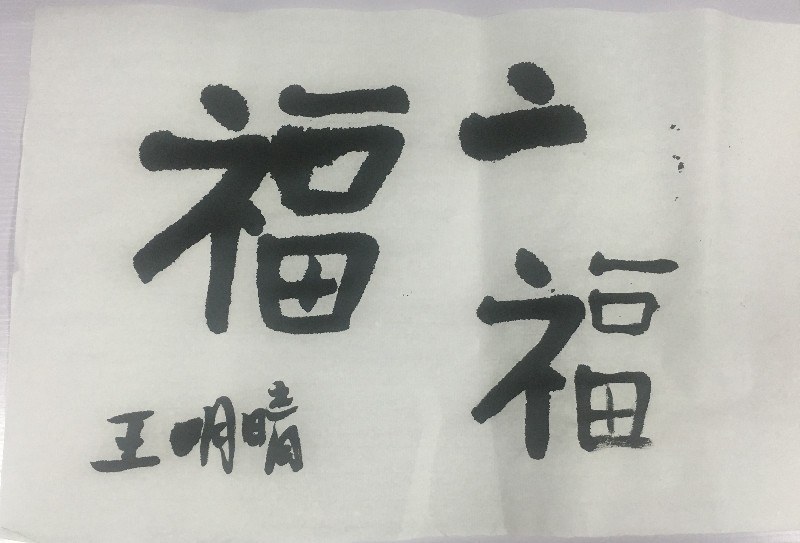 福
王明晴
福